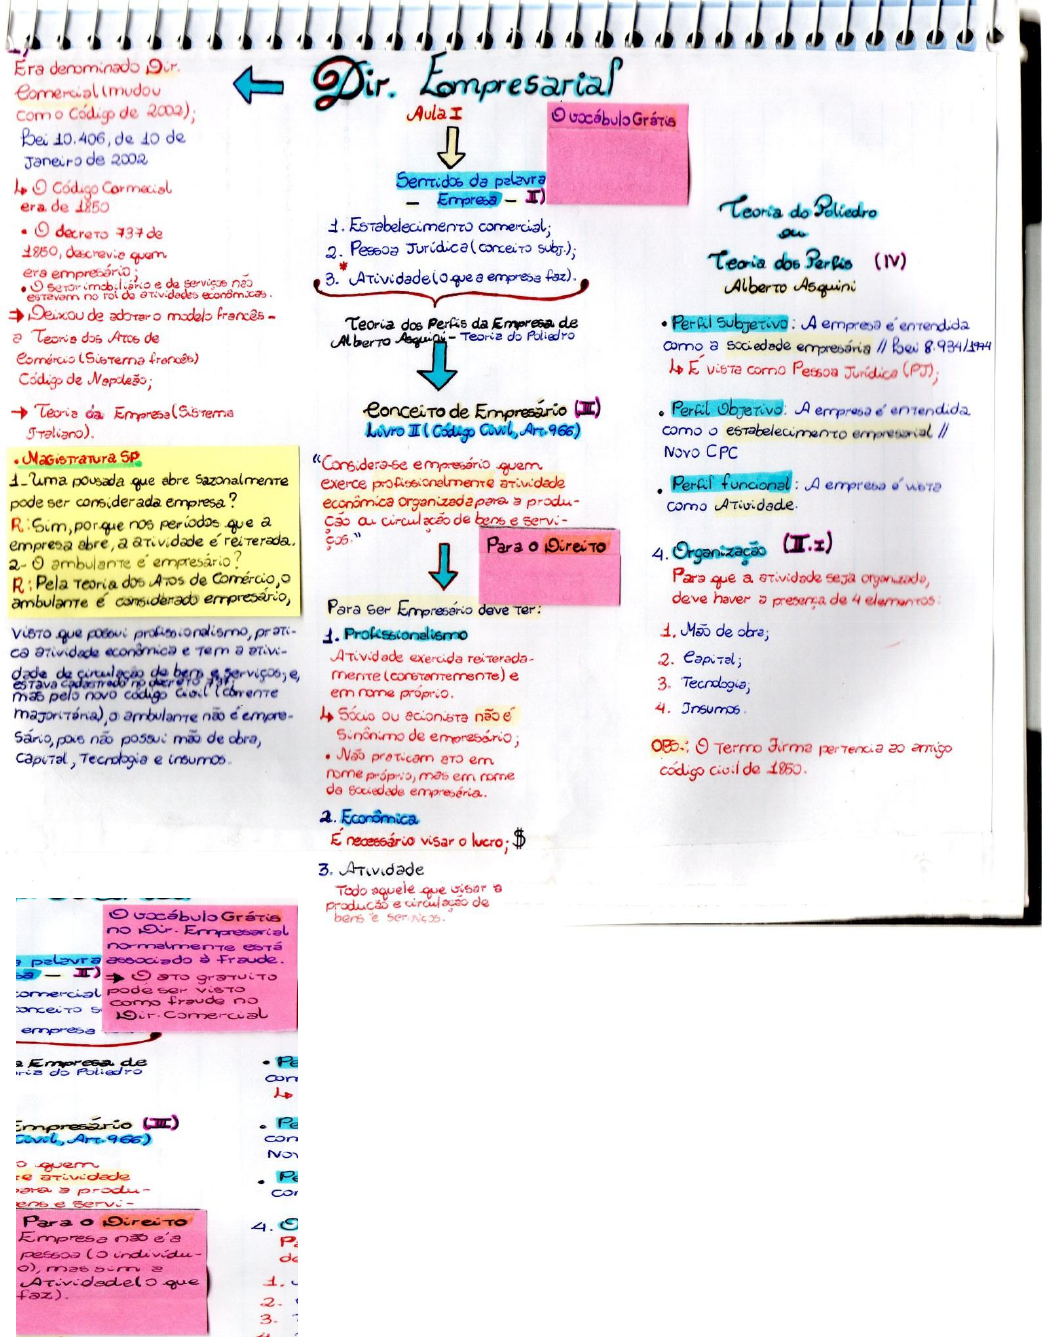 Dir. Empresarial
Era denominado Dir.
Comercial (mudou
com o Código de 2002);
Lei 10.406, de 10 de
Janeiro de 2002
↳ O Código Comercial
era de 1850
• O decreto 737 de
1850, descrevia quem
era empresário;
• O setor imobiliário e de serviços não
estavam no rol de atividades econômicas.
→ Deixou de adotar o modelo francês -
a Teoria dos Atos de
Comércio (Sistema francês)
Código de Napoleão;
→ Teoria da Empresa (Sistema
Italiano).
• Magistratura SP.
1 - Uma pousada que abre sazonalmente
pode ser considerada empresa?
R: Sim, porque nos períodos que a
empresa abre, a atividade é reiterada.
2 - O ambulante é empresário?
R: Pela Teoria dos Atos de Comércio, o
ambulante é considerado empresário,
visto que possui profissionalismo, prati-
ca atividade econômica e tem a ativi-
dade de circulação de bens e serviços, e,
estava cadastrado no decreto 737;
mas pelo novo código civil (corrente
majoritária), o ambulante não é empre-
sário, pois não possui mão de obra,
Capital, Tecnologia e insumos.
Aula I
O vocábulo Grátis
Sentidos da palavra
- Empresa - II)
1. Estabelecimento comercial;
2. Pessoa Jurídica (conceito subj.);
*
3. Atividade (o que a empresa faz).
Teoria dos Perfis da Empresa de
Alberto Asquini - Teoria do Poliedro
Conceito de Empresário (III)
Livro II (Código Civil, Art. 966)
"Considera-se empresário quem
exerce profissionalmente atividade
econômica organizada para a produ-
ção ou circulação de bens e servi-
ços."
Para o Direito
Para ser Empresário deve ter:
1. Profissionalismo
Atividade exercida reiterada-
mente (constantemente) e
em nome próprio.
↳ Sócio ou acionista não é
Sinônimo de empresário;
• Não praticam ato em
nome próprio, mas em nome
da sociedade empresária.
2. Econômica
É necessário visar o lucro; $
3. Atividade
Todo aquele que visar a
produção e circulação de
bens e serviços.
Teoria do Poliedro
ou
Teoria dos Perfis (IV)
Alberto Asquini
• Perfil Subjetivo: A empresa é entendida
como a sociedade empresária // Lei 8.934/1994
↳ É vista como Pessoa Jurídica (PJ);
• Perfil Objetivo: A empresa é entendida
como o estabelecimento empresarial //
Novo CPC
• Perfil funcional: A empresa é vista
como Atividade.
4. Organização (II.I)
Para que a atividade seja organizada,
deve haver a presença de 4 elementos:
1. Mão de obra;
2. Capital;
3. Tecnologia;
4. Insumos.
OBS.: O Termo Firma pertencia ao antigo
código civil de 1850.
O vocábulo Grátis
no Dir. Empresarial
normalmente está
associado à fraude.
→ O ato gratuito
pode ser visto
como fraude no
Dir. Comercial
a palavra
sa - II)
comercial
onceito s
empresa
a Empresa de
ria do Poliedro
Empresário (III)
Civil, Art. 966)
o quem
te atividade
para a produ-
bens e servi-
Para o Direito
Empresa não é a
pessoa (o indivídu-
o), mas sim a
Atividade (o que
faz).
• Pe
com
↳
• Pe
con
Nov
• Pe
co
4. O
Pa
de
1.
2.
3.
4